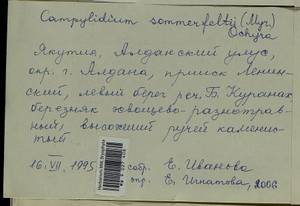 Campylidium sommerfeltii (Myr.)
Ochyra
Якутия, Алданский улус,
окр. г. Алдана, прииск Ленин-
ский, левый берег реч. Б. Куранах
березняк хвощево-разнотрав-
ный, высохший ручей каменис-
тый.
16. VII. 1995 собр. Е. Иванова
опр. Е. Игнатова, 2006